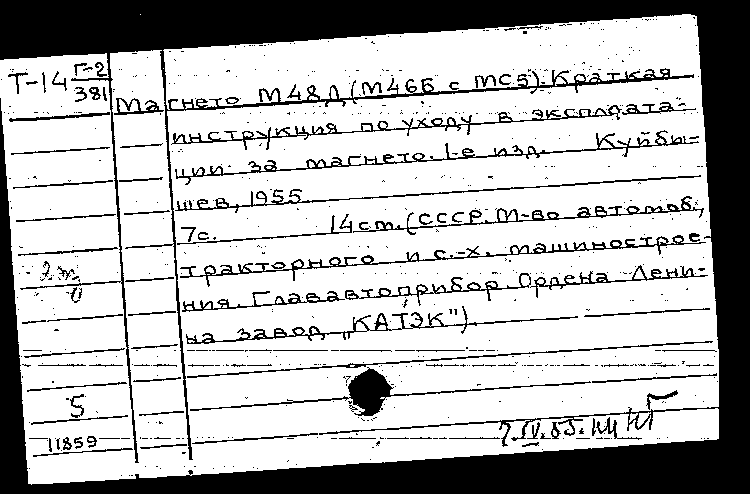 Т-14 Г-2
381
Магнето М48Д (М46Б с МС5). Краткая
инструкция по уходу в эксплоата-
ции за магнето. 1-е изд. Куйбы-
шев, 1955.
7с. 14см. (СССР. М-во автомоб.,
тракторного и с.-х. машинострое-
ния. Глававтоприбор. Ордена Лени-
на завод „КАТЭК").
5
11859
7.IV.55.